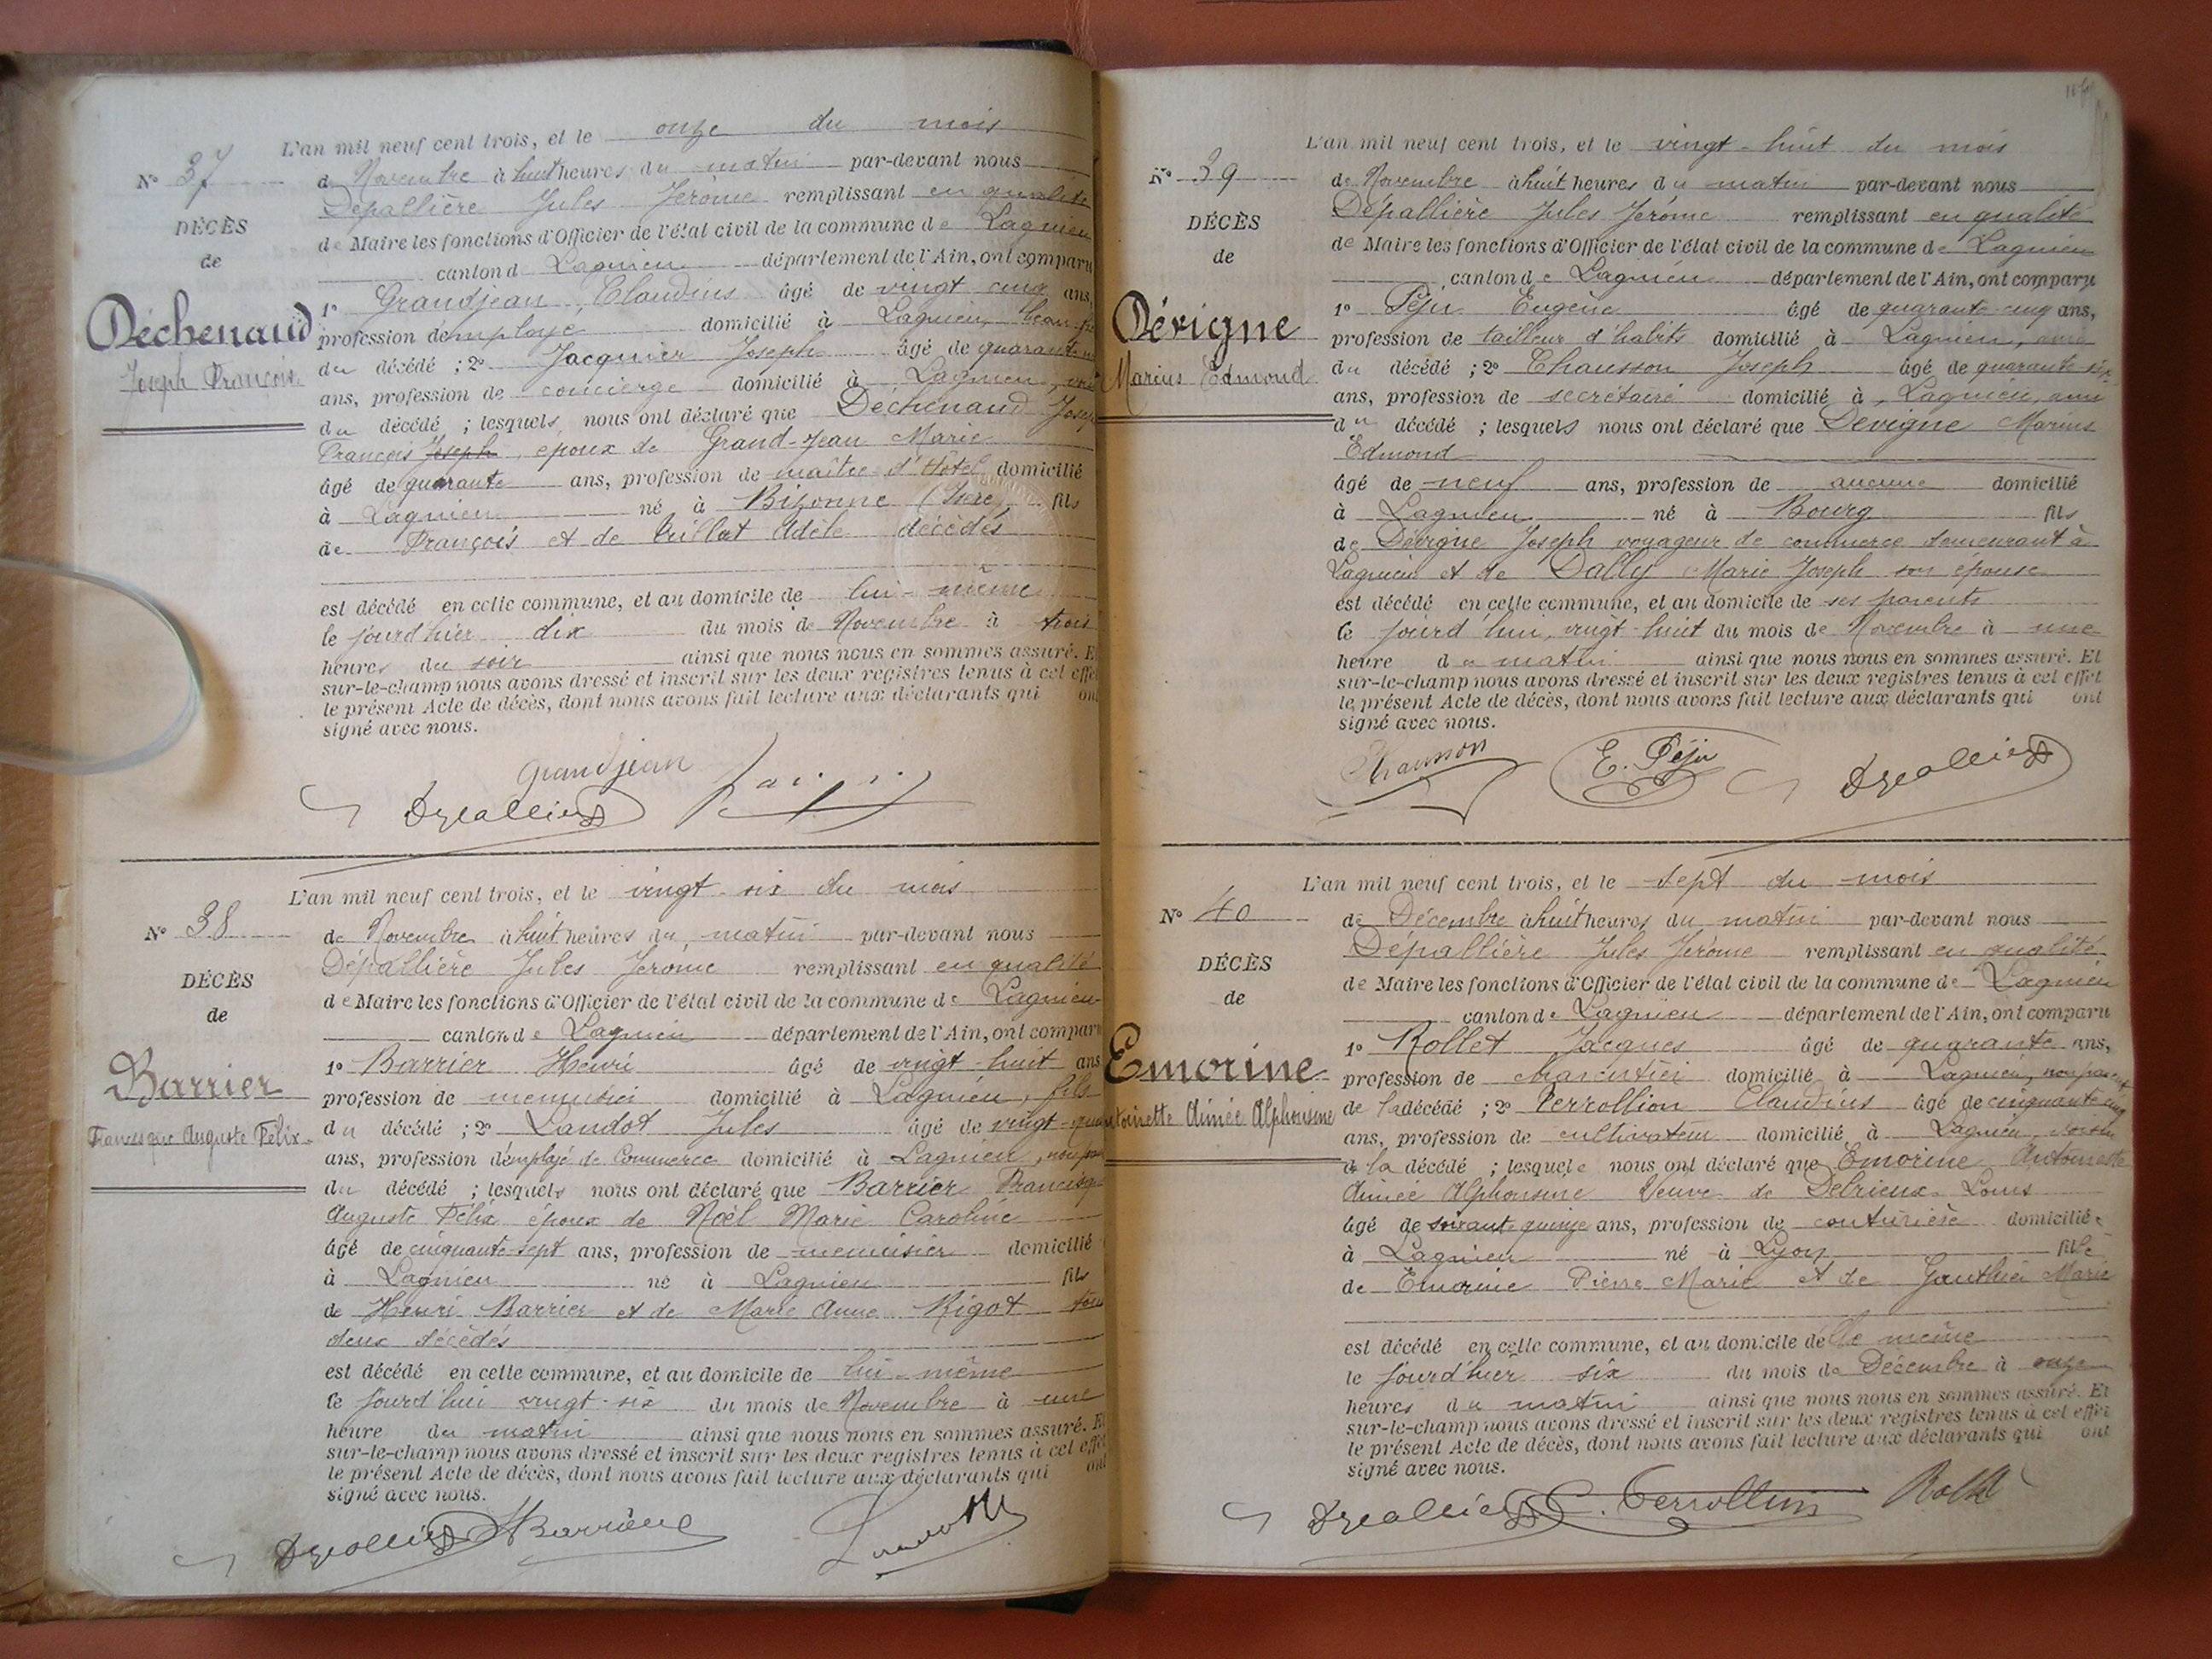 N° 37
DÉCÈS
de
Déchenaud
Joseph François
L'an mil neuf cent trois, et le onze du mois
de Novembre à huit heures du matin par-devant nous
Dépallière Jules Jérôme remplissant en qualité
de Maire les fonctions d'Officier de l'état civil de la commune de Lagnieu
canton d Lagnieu département de l'Ain, ont comparu
1° Grandjean Claudius âgé de vingt cinq ans,
profession d'employé domicilié à Lagnieu, beau-
du décédé ; 2° Jacquier Joseph âgé de quarante
ans, profession de concierge domicilié à Lagnieu,
du décédé ; lesquels nous ont déclaré que Déchenaud Joseph
François Joseph, époux de Grand-Jean Marie
âgé de quarante ans, profession de maître d'Hôtel domicilié
à Lagnieu né à Bizonne (Isère) fils
de François et de Trillat Adèle décédés
est décédé en cette commune, et au domicile de lui-même
le jourd'hier dix du mois de Novembre à trois
heures du soir ainsi que nous nous en sommes assuré. Et
sur-le-champ nous avons dressé et inscrit sur les deux registres tenus à cet effet
le présent Acte de décès, dont nous avons fait lecture aux déclarants qui ont
signé avec nous.
Grandjean
Dépallière
N° 38
DÉCÈS
de
Barrier
Francisque Auguste Félix
L'an mil neuf cent trois, et le vingt-six du mois
de Novembre à huit heures du matin par-devant nous
Dépallière Jules Jérome remplissant en qualité
de Maire les fonctions d'Officier de l'état civil de la commune de Lagnieu
canton de Lagnieu département de l'Ain, ont comparu
1° Barrier Henri âgé de vingt-huit ans
profession de menuisier domicilié à Lagnieu, fils
du décédé ; 2° Landot Jules âgé de vingt-
ans, profession d'employé de Commerce domicilié à Lagnieu,
du décédé ; lesquels nous ont déclaré que Barrier Francisque
Auguste Félix époux de Noël Marie Caroline
âgé de cinquante-sept ans, profession de menuisier domicilié
à Lagnieu né à Lagnieu fils
de Henri Barrier et de Marie Anne Rigot tous
deux décédés
est décédé en cette commune, et au domicile de lui-même
le jourd'hui vingt-six du mois de Novembre à une
heure du matin ainsi que nous nous en sommes assuré. Et
sur-le-champ nous avons dressé et inscrit sur les deux registres tenus à cet effet
le présent Acte de décès, dont nous avons fait lecture aux déclarants qui ont
signé avec nous.
Dépallière HBarrier
N° 39
DÉCÈS
de
Dévigne
Marius Edmond
L'an mil neuf cent trois, et le vingt-huit du mois
de Novembre à huit heures du matin par-devant nous
Dépallière Jules Jérôme remplissant en qualité
de Maire les fonctions d'Officier de l'état civil de la commune de Lagnieu
canton de Lagnieu département de l'Ain, ont comparu
1° Péju Eugène âgé de quarante-cinq ans,
profession de tailleur d'habits domicilié à Lagnieu, ami
du décédé ; 2° Chausson Joseph âgé de quarante-
ans, profession de secrétaire domicilié à Lagnieu, ami
du décédé ; lesquels nous ont déclaré que Dévigne Marius
Edmond
âgé de neuf ans, profession de aucune domicilié
à Lagnieu né à Bourg fils
de Dévigne Joseph voyageur de commerce demeurant à
Lagnieu et de Dally Marie Joseph son épouse
est décédé en cette commune, et au domicile de ses parents
le jourd'hui vingt-huit du mois de Novembre à une
heure du matin ainsi que nous nous en sommes assuré. Et
sur-le-champ nous avons dressé et inscrit sur les deux registres tenus à cet effet
le présent Acte de décès, dont nous avons fait lecture aux déclarants qui ont
signé avec nous.
Chausson E. Péju Dépallière
N° 40
DÉCÈS
de
Emorine
toinette Aimée Alphonsine
L'an mil neuf cent trois, et le sept du mois
de Décembre à huit heures du matin par-devant nous
Dépallière Jules Jérôme remplissant en qualité
de Maire les fonctions d'Officier de l'état civil de la commune de Lagnieu
canton de Lagnieu département de l'Ain, ont comparu
1° Rollet Jacques âgé de quarante ans,
profession de charcutier domicilié à Lagnieu, non parent
de la décédé ; 2° Perrollion Claudius âgé de cinquante cinq
ans, profession de cultivateur domicilié à Lagnieu, voisin
de la décédé ; lesquels nous ont déclaré que Emorine Antoinette
Aimée Alphonsine Veuve de Delrieux Louis
âgé de soixante quinze ans, profession de couturière domiciliée
à Lagnieu né à Lyon fille
de Emorine Pierre Marie et de Gauthier Marie
est décédé en cette commune, et au domicile d'elle même
le jourd'hier six du mois de Décembre à onze
heures du matin ainsi que nous nous en sommes assuré. Et
sur-le-champ nous avons dressé et inscrit sur les deux registres tenus à cet effet
le présent Acte de décès, dont nous avons fait lecture aux déclarants qui ont
signé avec nous.
Dépallière C. Perrollion Rollet